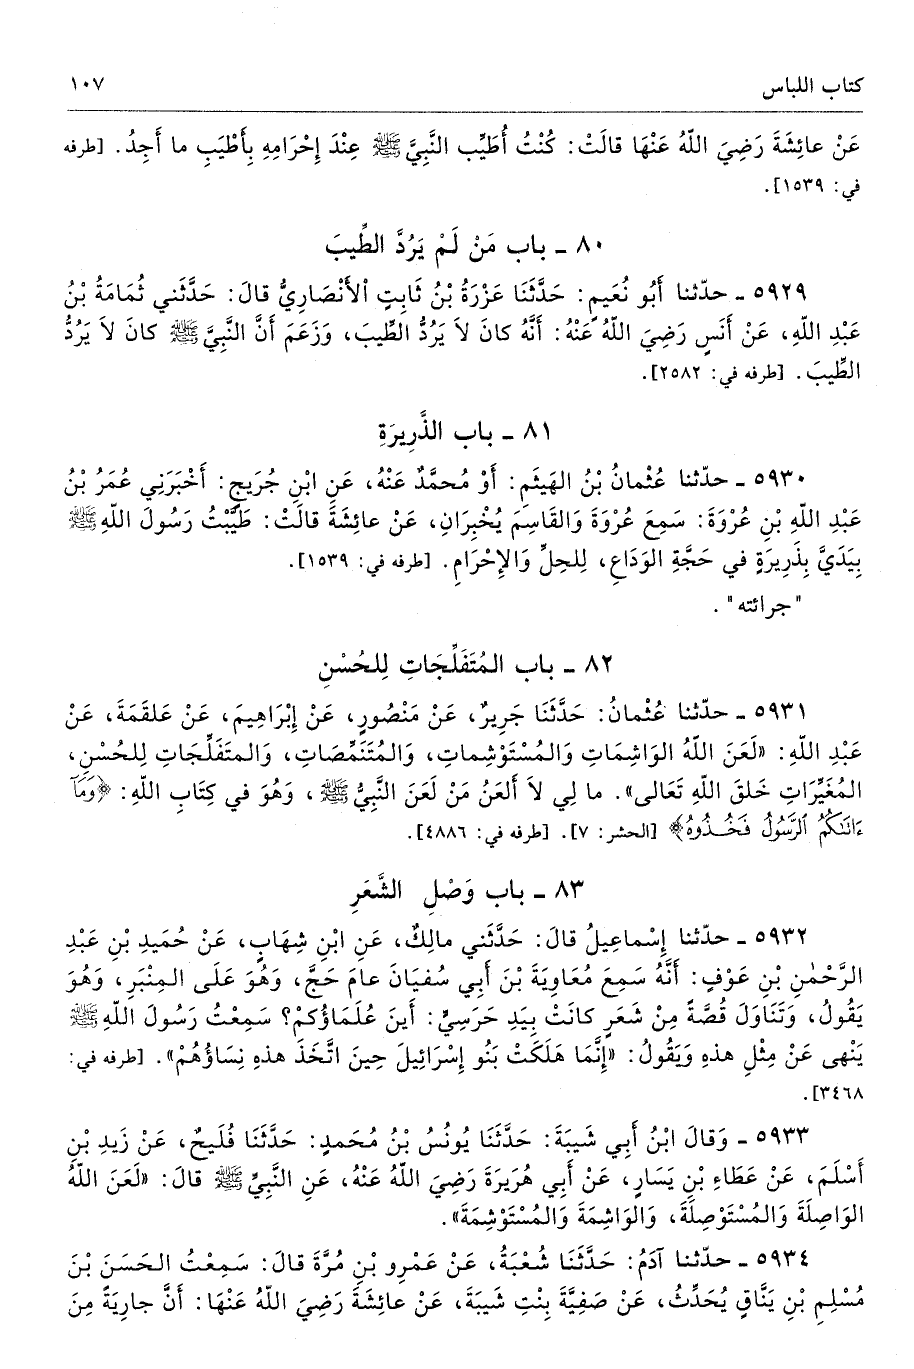 كتاب اللباس ١٠٧
عَنْ عائِشَةَ رَضِيَ اللّهُ عَنْهَا قالَتْ: كُنْتُ أُطَيِّب النَّبِيَّ ﷺ عِنْدَ إِحْرَامِهِ بِأَطْيَبِ ما أَجِدُ. [طرفه
في: ١٥٣٩].
٨٠ - باب مَنْ لَمْ يَرُدَّ الطِّيبَ
٥٩٢٩ - حدّثنا أَبُو نُعَيمٍ: حَدَّثَنَا عَزْرَةُ بْنُ ثَابِتٍ الأَنْصَارِيُّ قالَ: حَدَّثَني ثُمَامَةُ بْنُ
عَبْدِ اللّهِ، عَنْ أَنَسٍ رَضِيَ اللّهُ عَنْهُ: أَنَّهُ كانَ لاَ يَرُدُّ الطِّيبَ، وَزَعَمَ أَنَّ النَّبِيَّ ﷺ كانَ لاَ يَرُدُّ
الطِّيبَ. [طرفه في: ٢٥٨٢].
٨١ - باب الذَّرِيرَةِ
٥٩٣٠ - حدّثنا عُثْمانُ بْنُ الهَيثَمِ: أَوْ مُحمَّدٌ عَنْهُ، عَنِ ابْنِ جُرَيجٍ: أَخْبَرَنِي عُمَرُ بْنُ
عَبْدِ اللّهِ بْنِ عُرْوَةَ: سَمِعَ عُرْوَةَ وَالقَاسِمَ يُخْبِرَانِ، عَنْ عائِشَةَ قالَتْ: طَيَّبْتُ رَسُولَ اللّهِ ﷺ
بِيَدَيَّ بِذَرِيرَةٍ في حَجَّةِ الوَدَاعِ، لِلحِلِّ وَالإِحْرَامِ. [طرفه في: ١٥٣٩].
"جرائته".
٨٢ - باب المُتَفَلِّجَاتِ لِلحُسْنِ
٥٩٣١ - حدّثنا عُثْمانُ: حَدَّثَنَا جَرِيرٌ، عَنْ مَنْصُورٍ، عَنْ إِبْرَاهِيمَ، عَنْ عَلقَمَةَ، عَنْ
عَبْدِ اللّهِ: «لَعَنَ اللّهُ الوَاشِمَاتِ وَالمُسْتَوْشِماتِ، وَالمُتَنَمِّصَاتِ، وَالمتَفَلِّجَاتِ لِلحُسْنِ،
المُغَيِّرَاتِ خَلقَ اللّهِ تَعَالى». ما لِي لاَ أَلعَنُ مَنْ لَعَنَ النَّبِيُّ ﷺ، وَهُوَ في كِتَابِ اللّهِ: ﴿وَمَآ
ءَاتَىٰكُمُ ٱلرَّسُولُ فَخُذُوهُ﴾ [الحشر: ٧]. [طرفه في: ٤٨٨٦].
٨٣ - باب وَصْلِ الشَّعَرِ
٥٩٣٢ - حدّثنا إِسْماعِيلُ قالَ: حَدَّثَني مالِكٌ، عَنِ ابْنِ شِهَابٍ، عَنْ حُمَيدِ بْنِ عَبْدِ
الرَّحْمٰنِ بْنِ عَوْفٍ: أَنَّهُ سَمِعَ مُعَاوِيَةَ بْنَ أَبِي سُفيَانَ عامَ حَجَّ، وَهُوَ عَلَى المِنْبَرِ، وَهُوَ
يَقُولُ، وَتَنَاوَلَ قُصَّةً مِنْ شَعَرٍ كانَتْ بِيَدِ حَرَسِيٍّ: أَينَ عُلَمَاؤُكمْ؟ سَمِعْتُ رَسُولَ اللّهِ ﷺ
يَنْهى عَنْ مِثْلِ هذهِ وَيَقُولُ: «إِنَّمَا هَلَكَتْ بَنُو إِسْرَائِيلَ حِينَ اتَّخَذَ هذهِ نِسَاؤُهُمْ». [طرفه في:
٣٤٦٨].
٥٩٣٣ - وَقالَ ابْنُ أَبِي شَيبَةَ: حَدَّثَنَا يُونُسُ بْنُ مُحَمدٍ: حَدَّثَنَا فُلَيحٌ، عَنْ زَيدِ بْنِ
أَسْلَمَ، عَنْ عَطَاءِ بْنِ يَسَارٍ، عَنْ أَبِي هُرَيرَةَ رَضِيَ اللّهُ عَنْهُ، عَنِ النَّبِيِّ ﷺ قالَ: «لَعَنَ اللّهُ
الوَاصِلَةَ وَالمُسْتَوْصِلَةَ، وَالوَاشِمَةَ وَالمُسْتَوْشِمَةَ».
٥٩٣٤ - حدّثنا آدَمُ: حَدَّثَنَا شُعْبَةُ، عَنْ عَمْرِو بْنِ مُرَّةَ قالَ: سَمِعْتُ الحَسَنَ بْنَ
مُسْلِمِ بْنِ يَنَّاقٍ يُحَدِّثُ، عَنْ صَفِيَّةَ بِنْتِ شَيبَةَ، عَنْ عائِشَةَ رَضِيَ اللّهُ عَنْهَا: أَنَّ جارِيَةً مِنَ